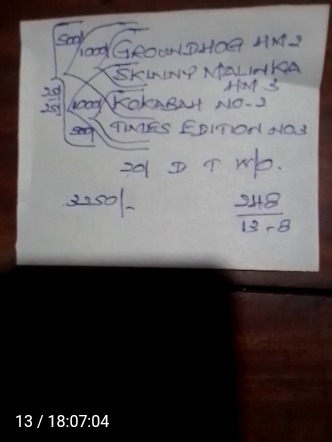 500
1000 GROUNDHOG HM2
SKINNY MALINKA
HM 3
1000 KOKABAH NO-2
500 TIMES EDITION NO3
20/ D T W/O.
3250/-
248
13-8
13 / 18:07:04